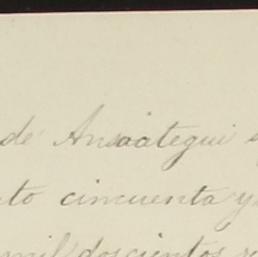 de Ansoategui
nto cincuenta y
mil doscientos